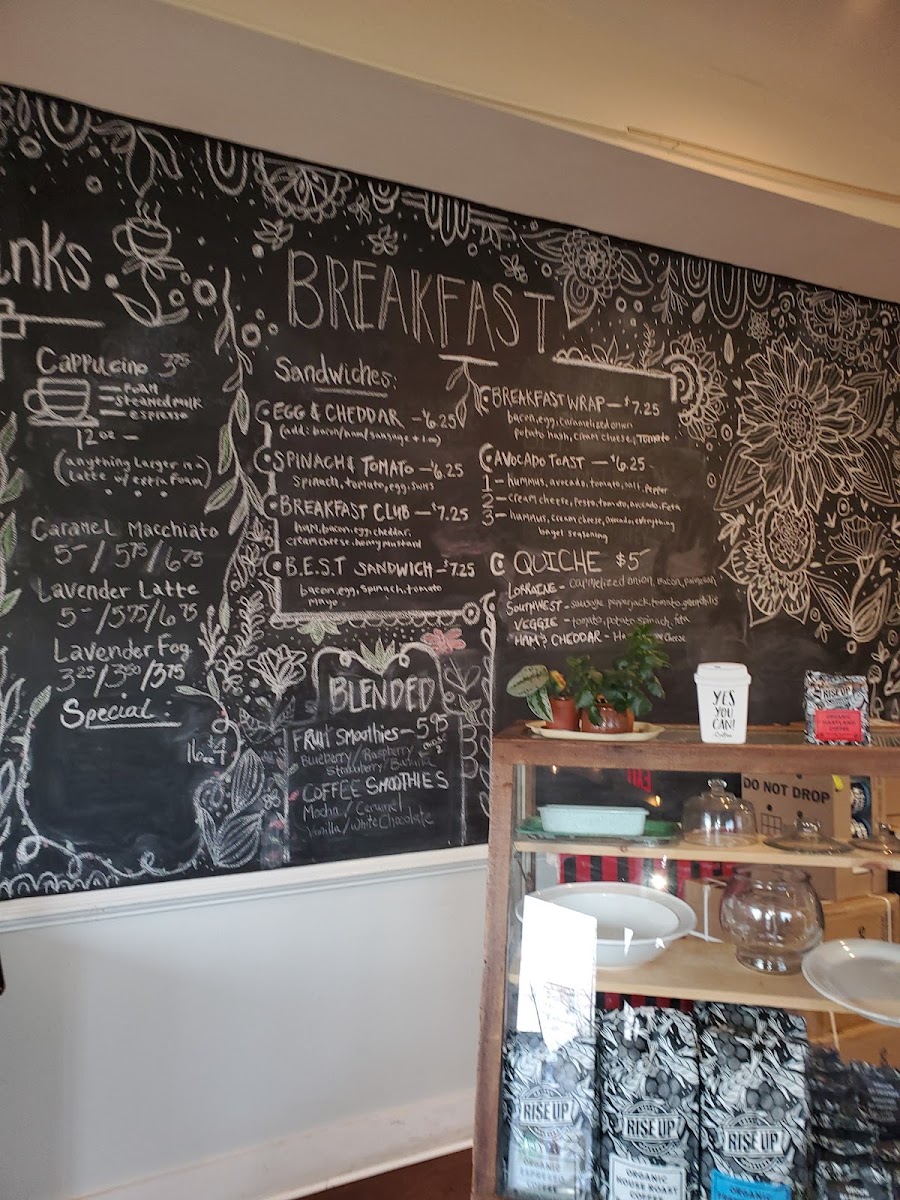 Cappucino 3.75
foam
steamed milk
espresso
12 oz —
(anything larger is a
latte w/ extra foam)
Caramel Macchiato
5 - / 5.75 / 6.75
Lavender Latte
5 - / 5.75 / 6.75
Lavender Fog
3.25 / 3.50 / 3.75
Special:
16oz $4
BREAKFAST
Sandwiches:
EGG & CHEDDAR — $6.25
(add: bacon/ham/sausage + 1.00)
SPINACH & TOMATO — $6.25
Spinach, tomato, egg, swiss
BREAKFAST CLUB — $7.25
ham, bacon, egg, cheddar,
cream cheese, honey mustard
B.E.S.T SANDWICH — $7.25
bacon, egg, spinach, tomato
mayo
BREAKFAST WRAP — $7.25
bacon, egg, caramelized onion
potato hash, cream cheese, tomato
AVOCADO TOAST — $6.25
1 - hummus, avocado, tomato, salt, pepper
2 - cream cheese, pesto, tomato, avocado, feta
3 - hummus, cream cheese, avocado, everything
bagel seasoning
QUICHE $5
LORRAINE - caramelized onion, bacon,
SOUTHWEST - sausage, pepperjack, tomato,
VEGGIE - tomato, potato, spinach, feta
HAM & CHEDDAR - Cheese
BLENDED
FRUIT SMOOTHIES — 5.95
Blueberry / Raspberry
Strawberry / Banana
COFFEE SMOOTHIES
Mocha / Caramel
Vanilla / White Chocolate
YES
YOU
CAN!
Coffee
RISE UP
ORGANIC
DO NOT DROP
RISE UP
ORGANIC
RISE UP
ORGANIC
HOUSE ROAST
RISE UP
ORGANIC